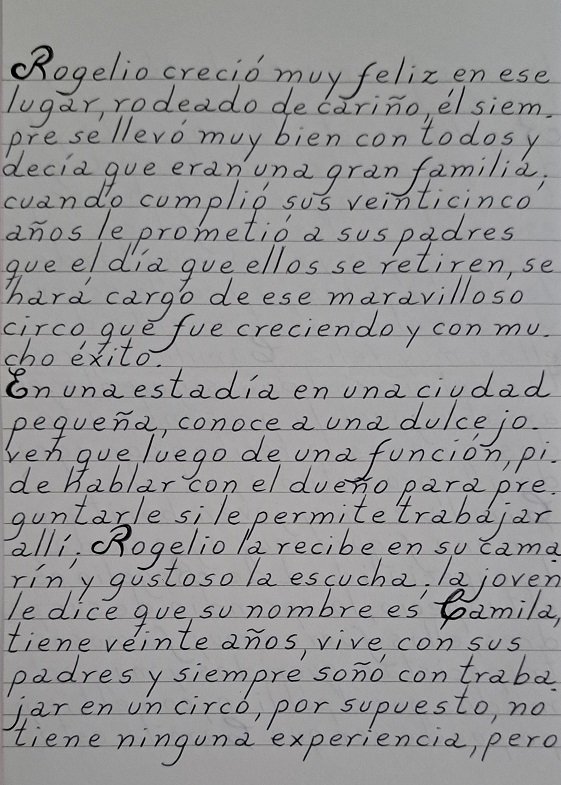 Rogelio creció muy feliz en ese
lugar, rodeado de cariño, él siem-
pre se llevó muy bien con todos y
decía que eran una gran familia;
cuando cumplió sus veinticinco
años le prometió a sus padres
que el día que ellos se retiren, se
hará cargo de ese maravilloso
circo que fue creciendo y con mu-
cho éxito.
En una estadía en una ciudad
pequeña, conoce a una dulce jo-
ven que luego de una función, pi-
de hablar con el dueño para pre-
guntarle si le permite trabajar
allí. Rogelio la recibe en su cama
rín y gustoso la escucha; la joven
le dice que su nombre es Camila,
tiene veinte años, vive con sus
padres y siempre soñó con traba-
jar en un circo, por supuesto, no
tiene ninguna experiencia, pero